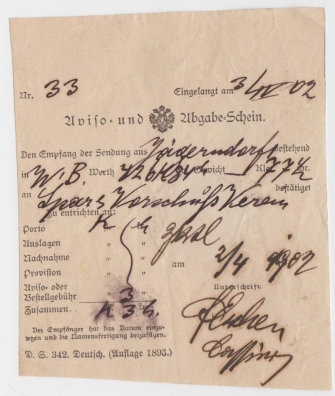 Nr. 33 Eingelangt am 3/IV 02
Aviso- und Abgabe-Schein.
Den Empfang der Sendung aus Jägerndorf bestehend
in W. B. Werth Gewicht
an Spar & Vorschuß Verein bestätiget
Zu entrichten an:
Porto K h
Auslagen " "
Nachnahme " " am 2/4 1902
Provision " "
Aviso- oder
Bestellgebühr " 3 " Unterschrift
Zusammen. K 3 h.
Der Empfänger hat das Datum einzu-
setzen und die Namensfertigung beizufügen.
D. S. 342. Deutsch. (Auflage 1893.)